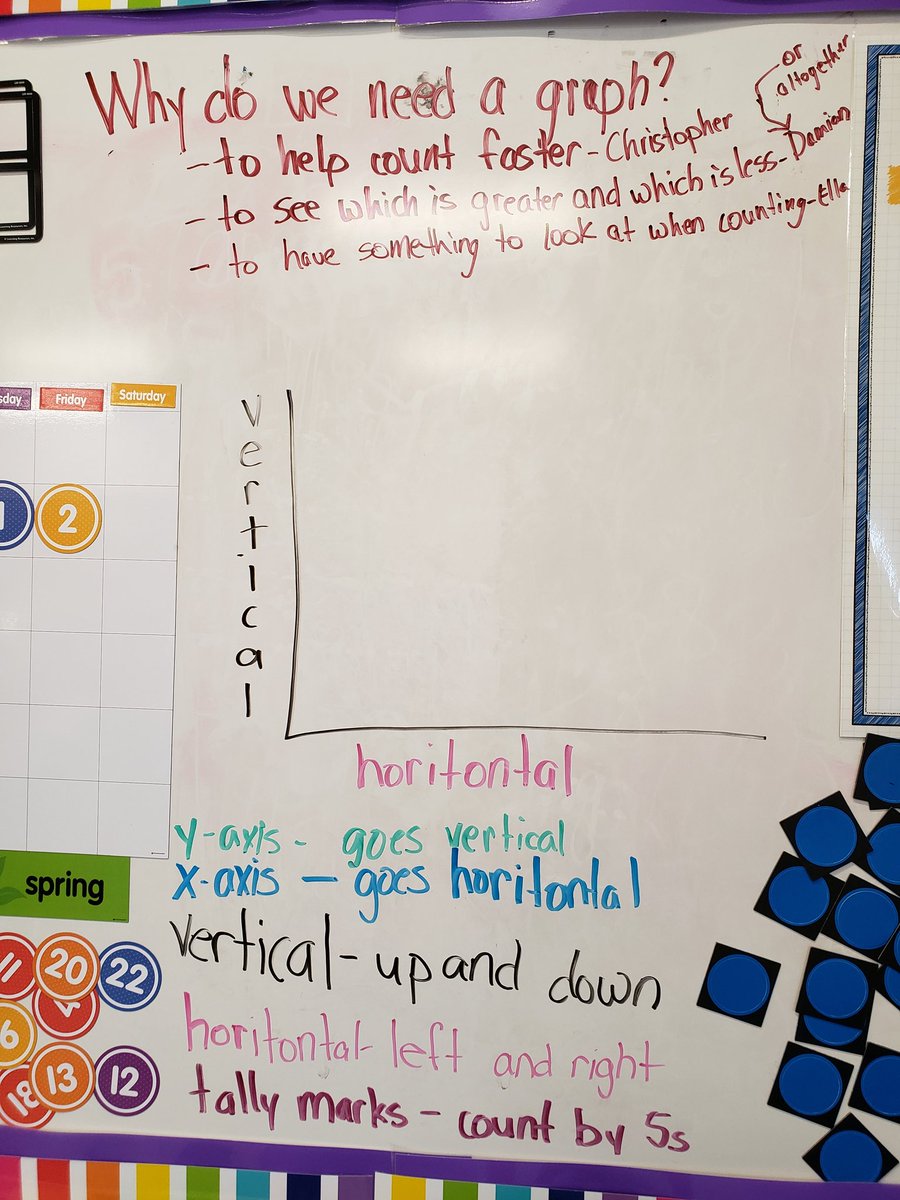 Why do we need a graph?
or
altogether
- to help count faster - Christopher
- to see which is greater and which is less - Damian
- to have something to look at when counting - Ella
sday Friday Saturday
1 2
vertical
horitontal
y-axis - goes vertical
x-axis - goes horitontal
spring
vertical - up and down
11 20 22
horitontal - left and right
6
13 12
18
tally marks - count by 5s